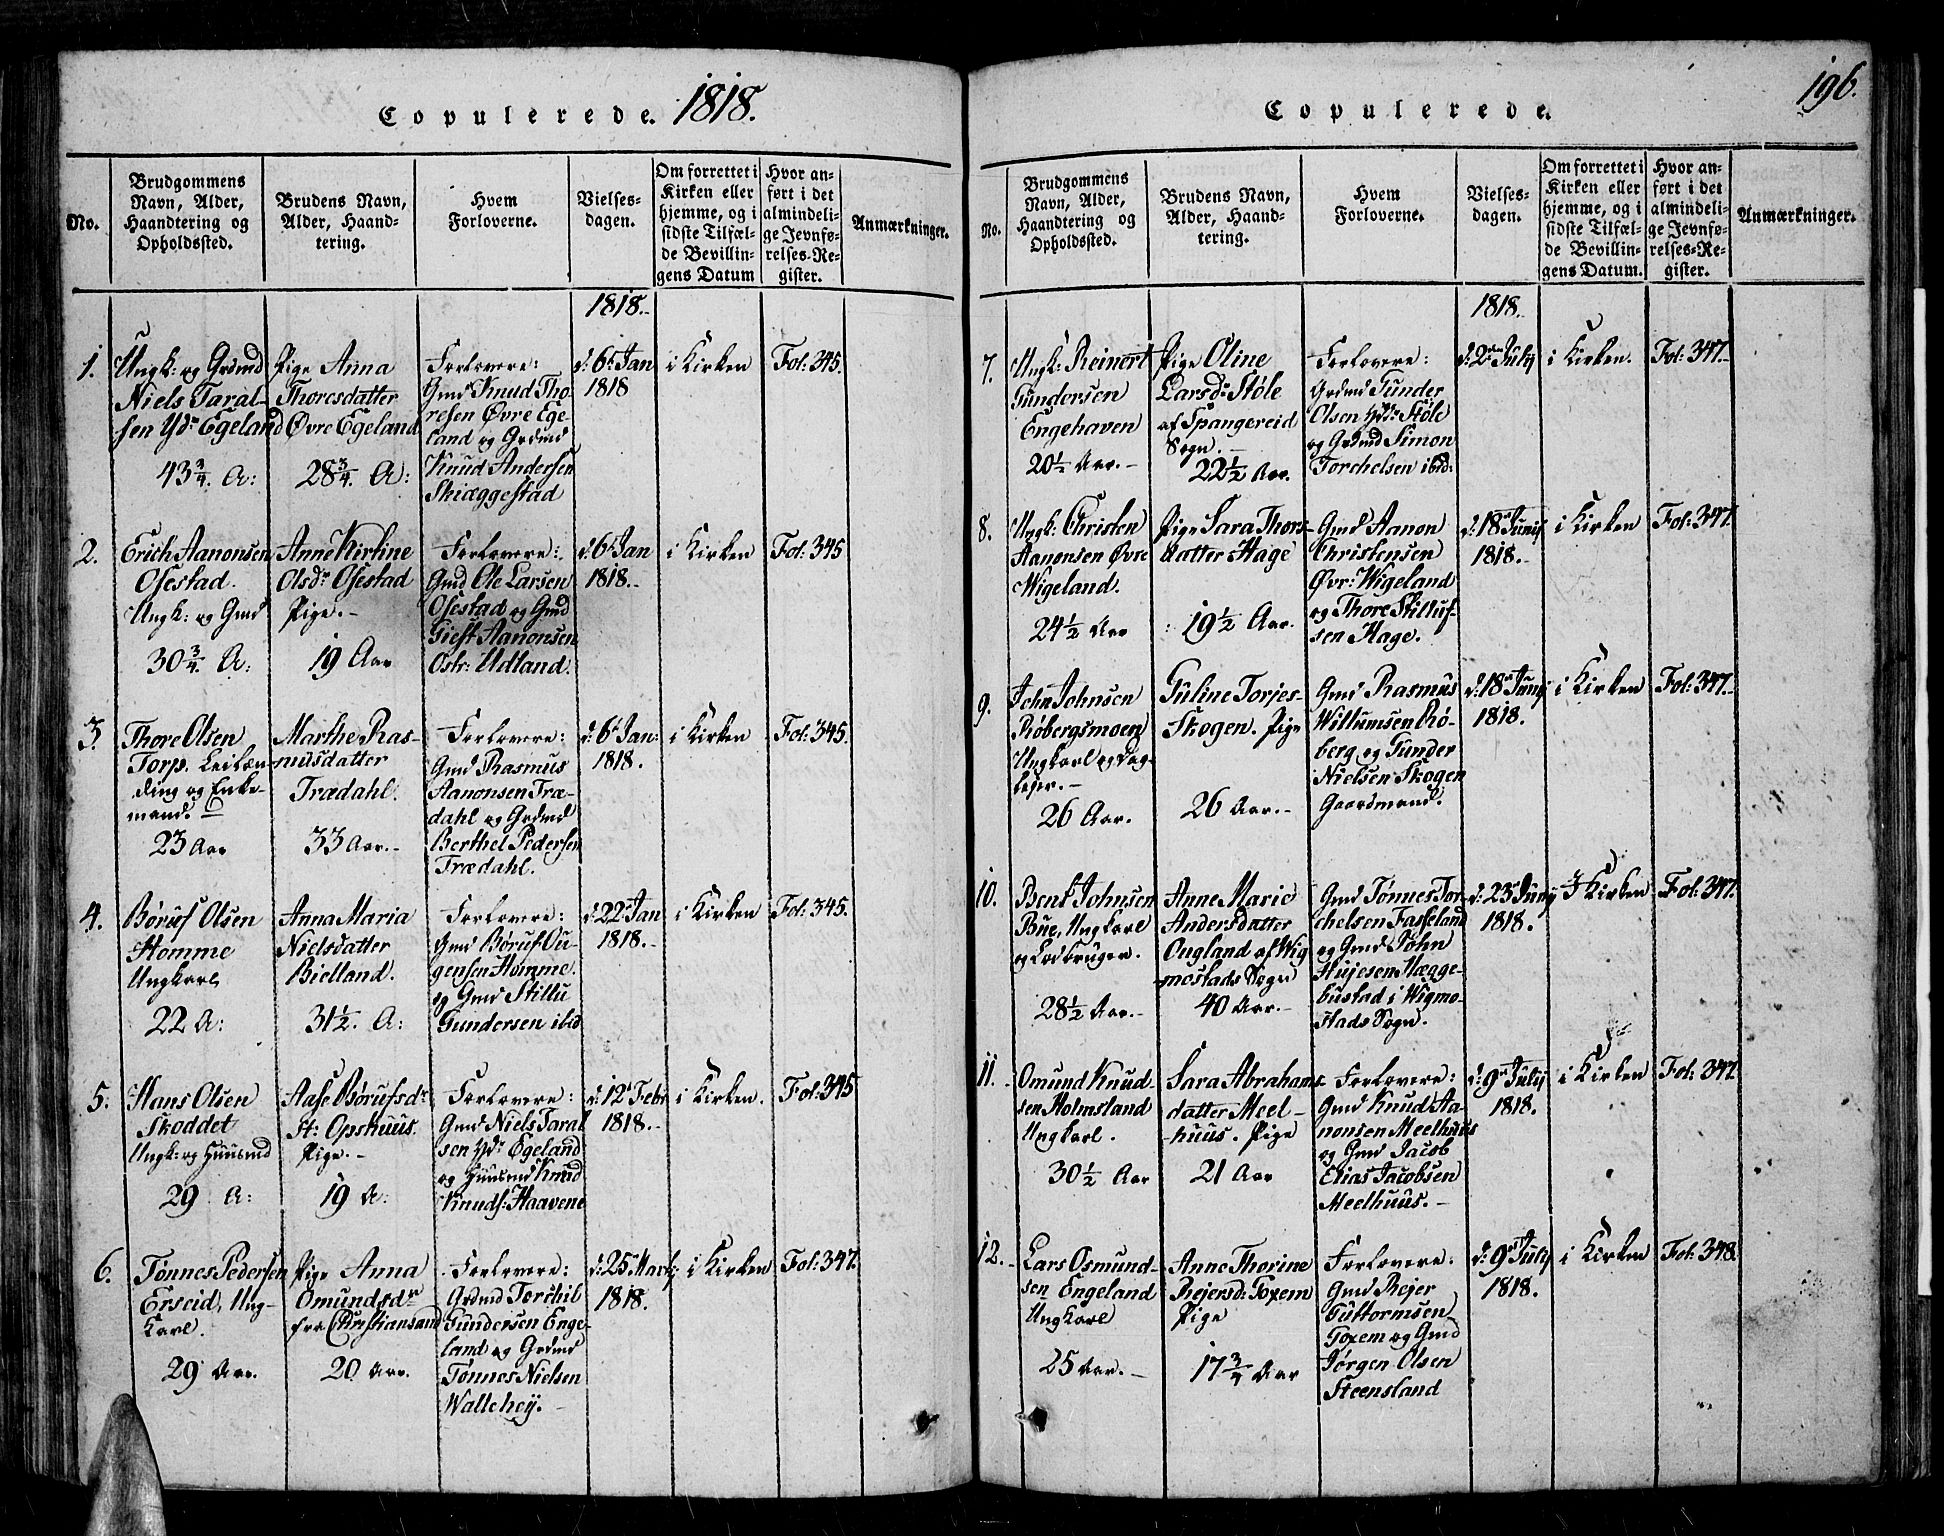 Copulerede. 1818.
No.
Brudgommens
Navn, Alder,
Haandtering og
Opholdssted.
Brudens Navn,
Alder, Haand-
tering.
Hvem
Forloverne.
Vielses-
dagen.
Om forrettet i
Kirken eller
hjemme, og i
sidste Tilfæl-
de Bevillin-
gens Datum
Hvor an-
ført i det
almindeli-
ge Jevnfø-
relses-Re-
gister.
Anmærkninger.
1818.
1.
Ungk: og Grdmd
Niels Taral-
sen Yd: Egeland
43 3/4. A:
Pige Anna
Thoresdatter
Øvre Egeland
28 3/4. A:
Forlovere:
Gmd Knud Tho-
resen Øvre Ege-
land og Grdmd
Knud Andersen
Skiæggestad
d: 6t Jan
1818
i Kirken
Fol: 345.
2.
Erich Aanonsen
Osestad.
Ungk: og Gmd
30 3/4. A:
Anne Kirstine
Olsdr Osestad
Pige.-
19 Aar
Forlovere:
Gmd Ole Larsen
Osestad og Gmd
Giest Aanonsen
Ostr: Udland.
d: 6t Jan
1818.-
i Kirken
Fol: 345
3.
Thore Olsen
Torp. Leilæn-
ding og Enke-
mand.
23 Aar
Marthe Ras-
musdatter
Trædahl.
33 Aar.-
Forlovere:
Gmd Rasmus
Aanonsen Træ-
dahl og Grdmd
Berthel Pedersen
Trædahl.
d: 6t Jan
1818.
i Kirken
Fol: 345.
4.
Børuf Olsen
Homme
Ungkarl
22 A:
Anna Maria
Nielsdatter
Bielland.
31 1/2. A:
Forlovere:
Gmd Børuf Ou-
gensen Homme.
og Gmd Stillu
Gundersen ibid
d: 22t Jan
1818.-
i Kirken
Fol: 345.
5.
Hans Olsen
Skoddet
Ungk: og Huusmd
29 A:
Aase Børufsdr
St: Opshuus.
Pige.-
19 A:
Forlovere:
Gmd Niels Taral
sen Yd: Egeland
og Huusmd Knud
Knuds: Haavene
d: 12t Febr
1818.-
i Kirken.
Fol: 345
6.
Tønnes Pedersen
Erseid, Ung-
karl.
29 Aar.
Pige Anna
Omundsdr
fra Christiansand
20 Aar.
Forlovere:
Grdmd Torchil
Gundersen Enge-
land og Grdmd
Tønnes Nielsen
Wallehey.-
d: 25 Martj
1818.
i Kirken
Fol: 347.
Copulerede. 196.
No.
Brudgommens
Navn, Alder,
Haandtering og
Opholdssted.
Brudens Navn,
Alder, Haand-
tering.
Hvem
Forloverne.
Vielses-
dagen.
Om forrettet i
Kirken eller
hjemme, og i
sidste Tilfæl-
de Bevillin-
gens Datum.
Hvor an-
ført i det
almindeli-
ge Jevnfø-
relses-Re-
gister.
Anmærkninger.
1818.
7.
Ungk: Reinert
Gundersen
Engehaven
20 1/2 Aar.-
Pige Oline
Larsdr Støle
af Spangereid
Sogn.-
22 1/2 Aar.
Forlovere:
Grdmd Gunder
Olsen Ydr Støle
og Grdmd Simon
Torchelsen ibid:
d: 2den July
i Kirken.
Fol: 347.
8.
Ungk: Christen
Aanonsen Øvre
Wigeland.
24 1/2 Aar
Pige Sara Thors-
datter Hage
19 1/2 Aar.
Gmd Aanon
Christensen
Øvr: Wigeland
og Thore Stilluf-
sen Hage.
d: 18t Junij
1818.-
i Kirken
Fol: 347.
9.
John Johnsen
Røbergsmoen
Ungkarl og Dag-
leyer.-
26 Aar.
Guline Torjes-
Skogen. Pige
26 Aar.-
Gmd Rasmus
Willumsen Rø-
berg og Gunder
Nielsen Skogen
Gaardmand.
d: 18t Junij
1818.
i Kirken
Fol: 347.
10.
Bent Johnsen
Bue, Ungkarl
og Lodbruger.
28 1/2 Aar.-
Anne Marie
Andersdatter
Ongland af Wig
mostads Sogn
40 Aar.-
Gmd Tønnes Tor-
chelsen Fasseland
og Gmd John
Hujesen Hægge-
bustad i Wigmo-
stads Sogn.
d: 23t Junij
1818.
i Kirken
Fol: 347.
11.
Omund Knud-
sen Holmsland
Ungkarl.
30 1/2 Aar
Sara Abrahams-
datter Meel-
huus. Pige
21 Aar
Forlovere:
Gmd Knud Aa-
nonsen Meelhuus
og Gmd Jacob
Elias Jacobsen
Meelhuus.-
d: 9t Julij
1818.
i Kirken
Fol: 347.
12.
Lars Osmund-
sen Engeland
Ungkarl
25 Aar.-
Anne Thorine
Rejersd: Foxem
Pige
17 3/4 Aar
Forlovere:
Gmd Rejer
Guttormsen
Foxem og Gmd
Jørgen Olsen
Steensland
d: 9t Julij
1818.
i Kirken
Fol: 348.